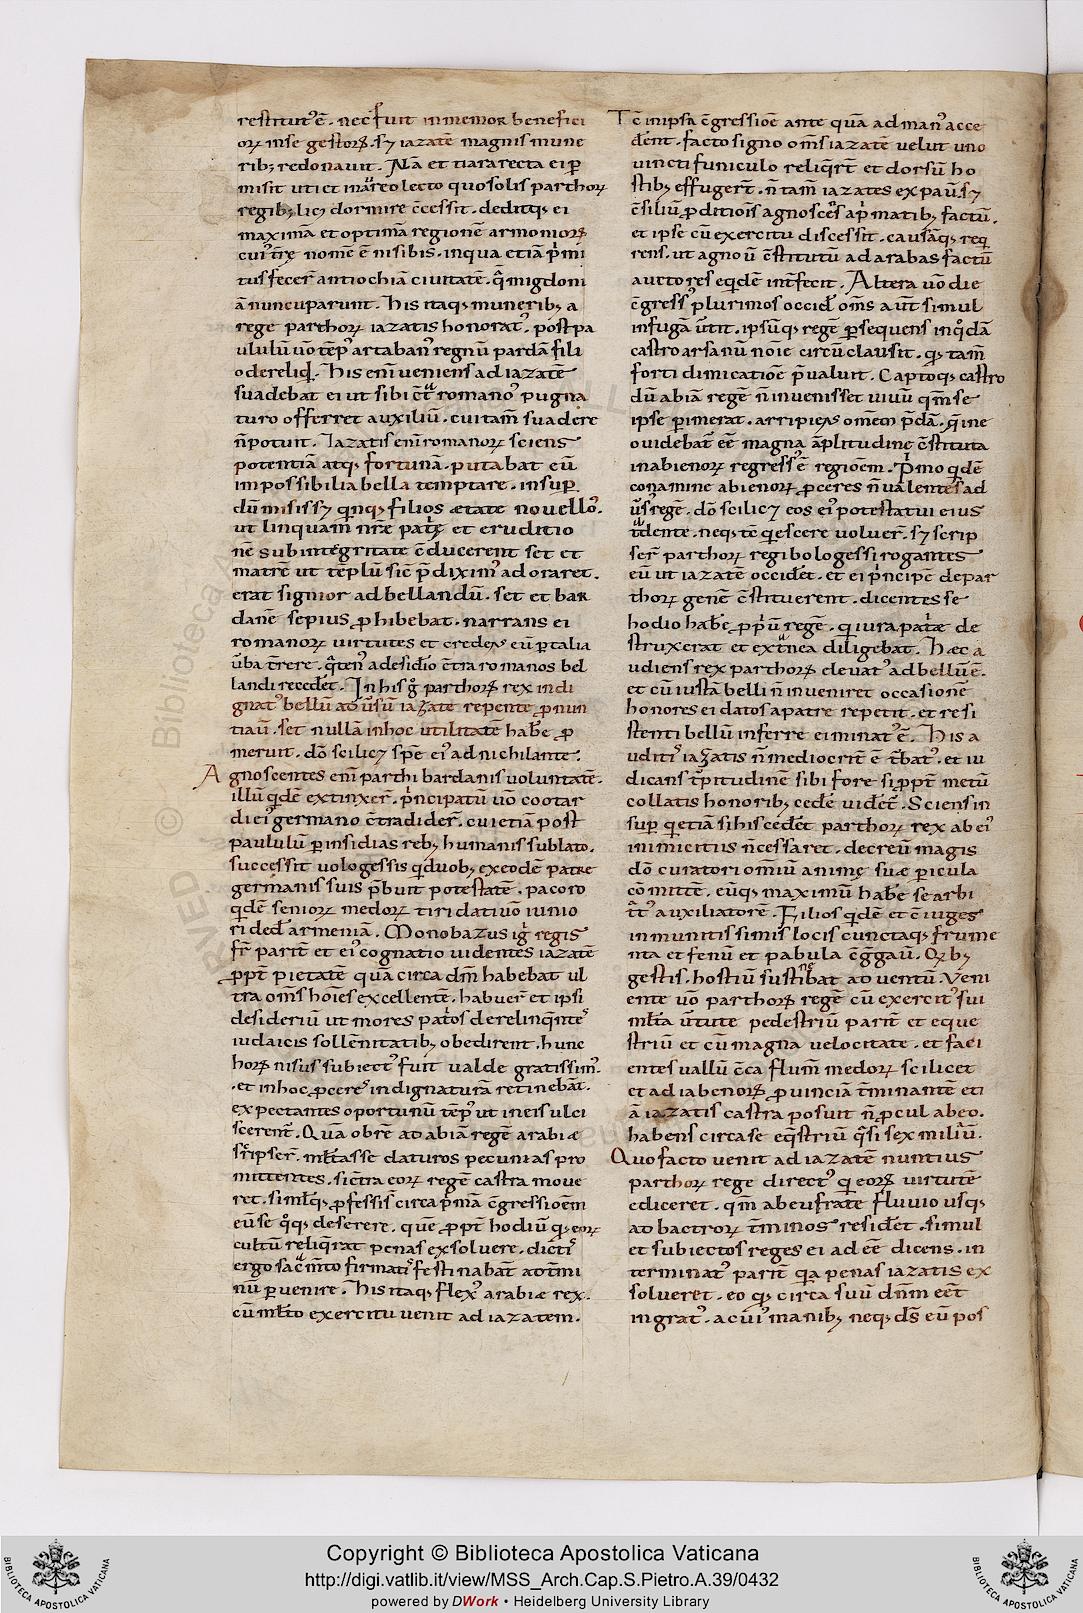 restitut' ē. nec fuit inmemor benefici
orꝝ inse gestorꝝ. sꝫ iazatē magnis mune
ribꝫ redonauit. Nā et tiara recta ei ꝑ
misit uti et in aureo lecto quo solis parthorꝝ
regibꝫ licꝫ dormire c̄cessit. deditqꝫ ei
maximā et optimā regionē armoniorꝝ
cui t̄rę nomē ē nisibis. in qua etiā p̄mi
tus fecer̄ antiochiā ciuitatē. q̄ migdoni
ā nuncuparunt. his itaqꝫ muneribꝫ a
rege parthorꝝ iazatis honorat'. post pa
ululū uo tēp' artaban' regnū pardā fili
o dereliq̄. his enī ueniens ad iazatē
suadebat ei ut sibi c̄tra romano' pugna
turo offerret auxiliū. cui tam̄ suadere
n̄ potuit. Iazatis enī romanorꝝ sciens
potentiā atqꝫ fortunā. putabat eū
impossibilia bella temptare. insuꝑ
dū misissꝫ qinqꝫ filios ætate nouello'.
ut linguam̄ nr̄æ patrię et eruditio
nē sub integritate ēducerent set et
matrē ut tēplū sic p̄dixim' adoraret.
erat signior ad bellandū. set et bar
danē sepius ꝓhibebat. narrans ei
romanorꝝ uirtutes et credes eū ꝑ talia
ūba t̄rere. q̄ten' a desidio c̄tra romanos bel
landi recedet̄. In his g° parthorꝝ rex indi
gnat' bellū ad ūsū iazatē repente ꝓnun
tiau̅. set nullā in hoc utilitatē habe ꝓ
meruit. dō scilicꝫ spē ei' adnichilante.
Agnoscentes enī parthi bardanis uoluntatē.
illū qidē extinxer̄. p̄ncipatū uō cootar
di ei' germano c̄tradider̄. cui etiā post
paululū ꝑ insidias rebꝫ humanis sublato.
successit uologessis q̄ duobꝫ ex eodē patre
germanis suis p̄buit potestatē. pacoro
qidē seniorꝝ medorꝝ tiridati uō iunio
ri ded̄ armeniā. Monobazus ig̅ regis
fr̄ parit̄ et ei' cognatio uidentes iazatē
ꝓpt̄ pietatē quā circa dm̄ habebat ul
tra om̄s hoīes excellentē. habuer̄ et ipsi
desideriū ut mores patos derelinqntes
iudaicis sollēnitatibꝫ obedirent. hunc
horꝝ nisus subiect' fuit ualde gratissim'.
. et in hoc ꝓceres indignaturā retinebāt.
expectantes oportunū tēp' ut in eis ulci
scerent̄. Quā obrē ad abiā regē arabiæ
sc̄ripser̄. ml̄tasse daturos pecunias pro
mittentes. si c̄tra eorꝝ regē castra moue
ret. simlqꝫ ꝓfessis circa p̄mā c̄gressionem
eū se qqꝫ deserere. que ꝓpt̄ hodiū qꝫ eorꝝ
cultū reliq̄rat penas exsoluere. dict'
ergo sacm̄to firmatis festinabāt ad t̄mi
nū ꝑuenire. his itaqꝫ flex' arabiæ rex.
cū ml̄to exercitu uenit ad iazatem.
Tc̄ in ipsa c̄gressionē ante quā ad man' acce
derent. facto signo om̄s iazatē uelut uno
uincti funiculo reliqr̄t et dorsū ho
stibꝫ effugert̄. n̄ tam̄ iazates expaū. sꝫ
c̄siliū ꝓditiois agnosces ap̄matibꝫ factū.
et ipse cū exercitu discessit. causāqꝫ req
rens. ut agnoū c̄stitutū ad arabas factū
auctores eqidē int̄fecit. Altera uō die
c̄gress' plurimos occid̄ om̄s aut̄ simul
in fugā ūtit. ipsūqꝫ regē ꝑsequens in qdā
castro arsanū nōie circū clausit. qꝫ tam̄
forti dimicatione p̄ualuit. Captoqꝫ castro
dū abiā regē n̄ inuenisset uiuū qm̄ se
ipse ꝑimerat. arripies omēm p̄dā. q̄ ine
o uidebat̄ eē magna āplitudinę c̄stituta
in abienorꝝ regress' ē regioēm. Primo qdē
conamine abienorꝝ ꝓceres n̄ ualentes ad
ūs' regē. dō scilicꝫ eos ei' potestatui eius
tradente. neqꝫ tē qiescere uoluer̄. sꝫ scrip
ser̄ parthorꝝ regi bologessi rogantes
eū ut iazatē occidet̄. et ei p̄ncipē de par
thorꝝ genē c̄stituerent. dicentes se
hodio habe ꝓp'ū regē. qi iura patæ de
struxerat et ext̄nea diligebat. hæc a
udiens rex parthorꝝ eleuat' ad bellū ē.
et cū iustā belli n̄ inueniret occasionē
honores ei datos a patre repetit. et resi
stenti bellū inferre ei minat' ē. his a
udit' iazatis n̄ mediocrit̄ ē t̄bat'. et iu
dicans t̄pitudinē sibi fore si ꝓpt̄ metū
collatis honoribꝫ cede uidet̄. Sciens in
suꝑ q etiā si his cedet̄ parthorꝝ rex ab ei'
inimicitiis n̄ cessaret. decreū magis
dō curatori omīū animę suæ pericula
cō mittē. eūqꝫ maximū habe se arbi
t̄t' auxiliatorē. Filios qdē et c̄iuges
in munitissimis locis cunctaqꝫ frume
nta et fenū et pabula c̄ggau̅. Qꝫ bꝫ
gestis. hostiū sustinebat aduentū. Veni
ente uō parthorꝝ regē cū exercit' sui
ml̄ta ūtute pedestriū parit̄ et eque
striū et cū magna uelocitate. et faci
entes uallū c̄ca flum̄ medorꝝ scilicet
et adiabenorꝝ ꝓuinciā t̄minantē eti
ā iazatis castra posuit n̄ ꝓcul ab eo.
habens circa se eqstriū q̄si sex miliū.
Quo facto uenit ad iazatē nuntius
parthorꝝ rege direct' qi eorꝝ uirtutē
ediceret. qm̄ ab eufrate fluuio usqꝫ
ad bactrorꝝ t̄minos residet̄. simul
et subiectos reges ei ad eē dicens. in
terminat' parit̄ qa penas iazatis ex
solueret. eo qꝫ circa suū dn̄m eēt
ingrat'. ac ui' manibꝫ neqꝫ ds̄ eū pos
Copyright © Biblioteca Apostolica Vaticana
http://digi.vatlib.it/view/MSS_Arch.Cap.S.Pietro.A.39/0432
powered by DWork • Heidelberg University Library